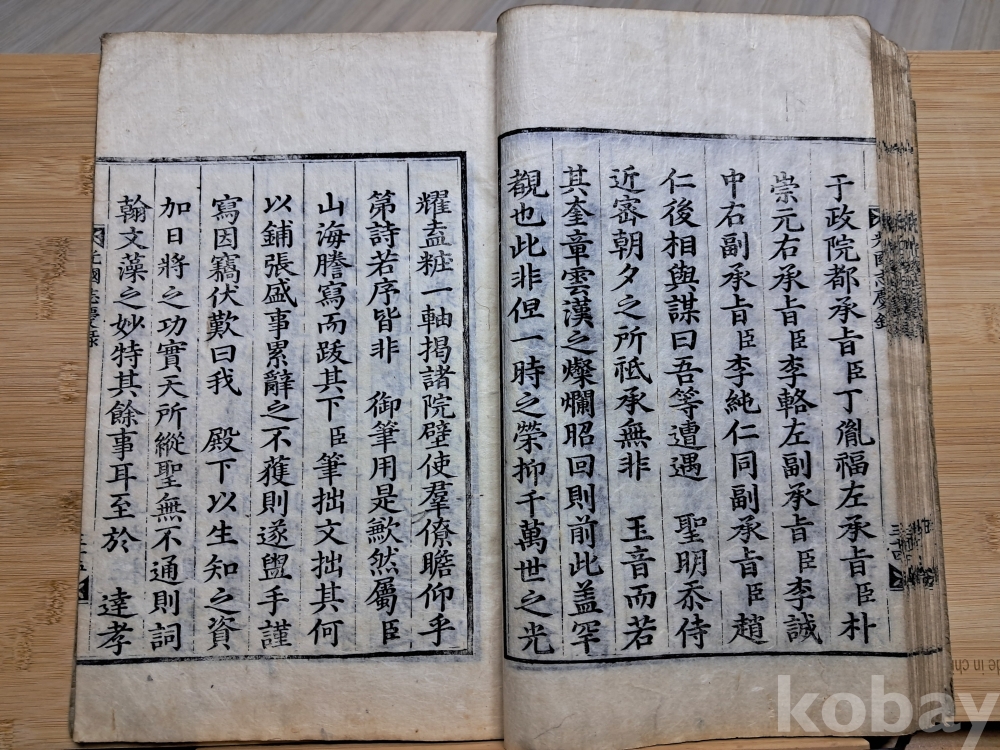 于政院都承旨臣丁胤福左承旨臣朴
崇元右承旨臣李輅左副承旨臣李誠
中右副承旨臣李純仁同副承旨臣趙
仁後相與謀曰吾等遭遇 聖明忝侍
近密朝夕之所祇承無非 玉音而若
其奎章雲漢之燦爛昭回則前此盖罕
覩也此非但一時之榮抑千萬世之光
耀盍粧一軸揭諸院壁使羣僚瞻仰乎
第詩若序皆非 御筆用是歉然屬臣
山海謄寫而跋其下臣筆拙文拙其何
以鋪張盛事累辭之不獲則遂盥手謹
寫因竊伏歎曰我 殿下以生知之資
加日將之功實天所縱聖無不通則詞
翰文藻之妙特其餘事耳至於 達孝
光國志慶錄
kobay